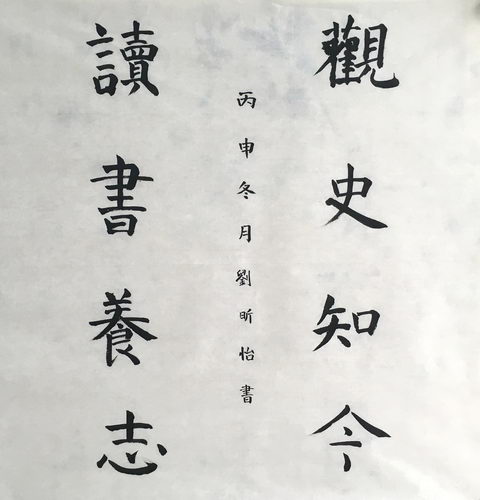 觀史知今
讀書養志
丙申冬月劉昕怡書